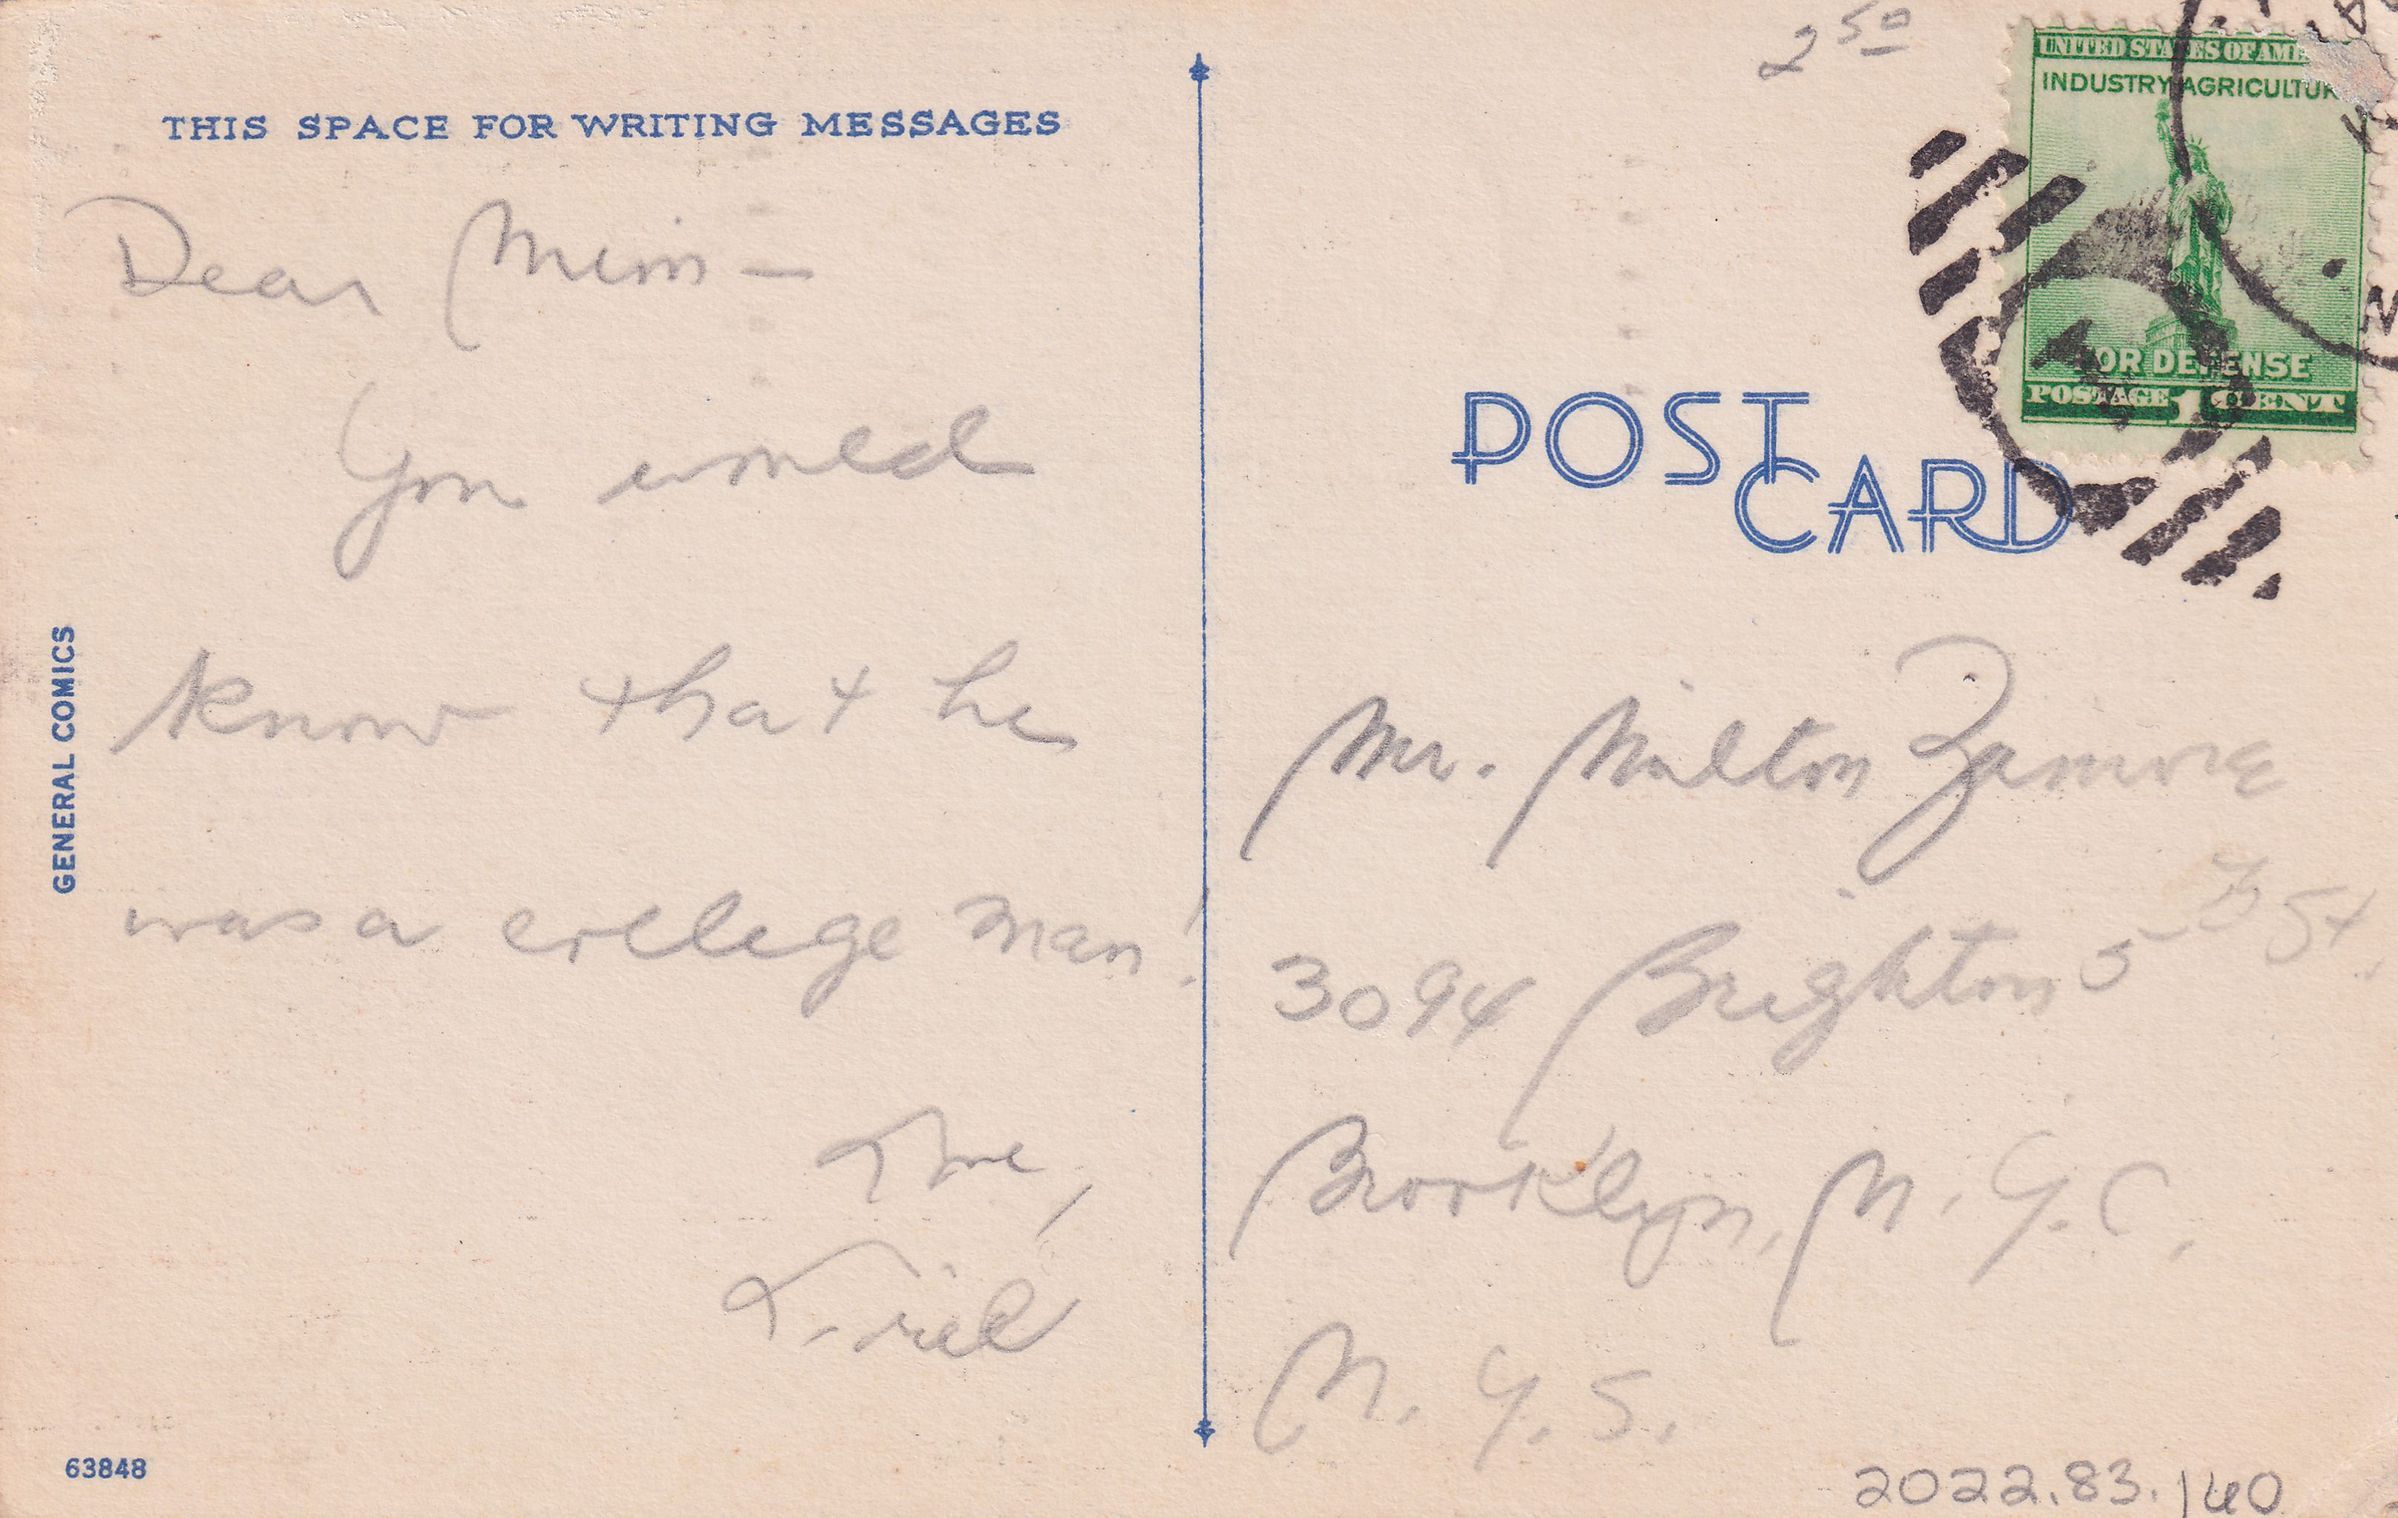 THIS SPACE FOR WRITING MESSAGES
Dear Mim —
You would
know that he
was a college man!
Love,
GENERAL COMICS
63848
2 50
UNITED STATES OF AME
INDUSTRY AGRICULTUR
OR DEFENSE
POSTAGE 1 CENT
POST
CARD
Mr. Milton Zamore
3094 Brighton 5th St.
Brooklyn, N.Y.C.
N.Y.S.
2022.83.140